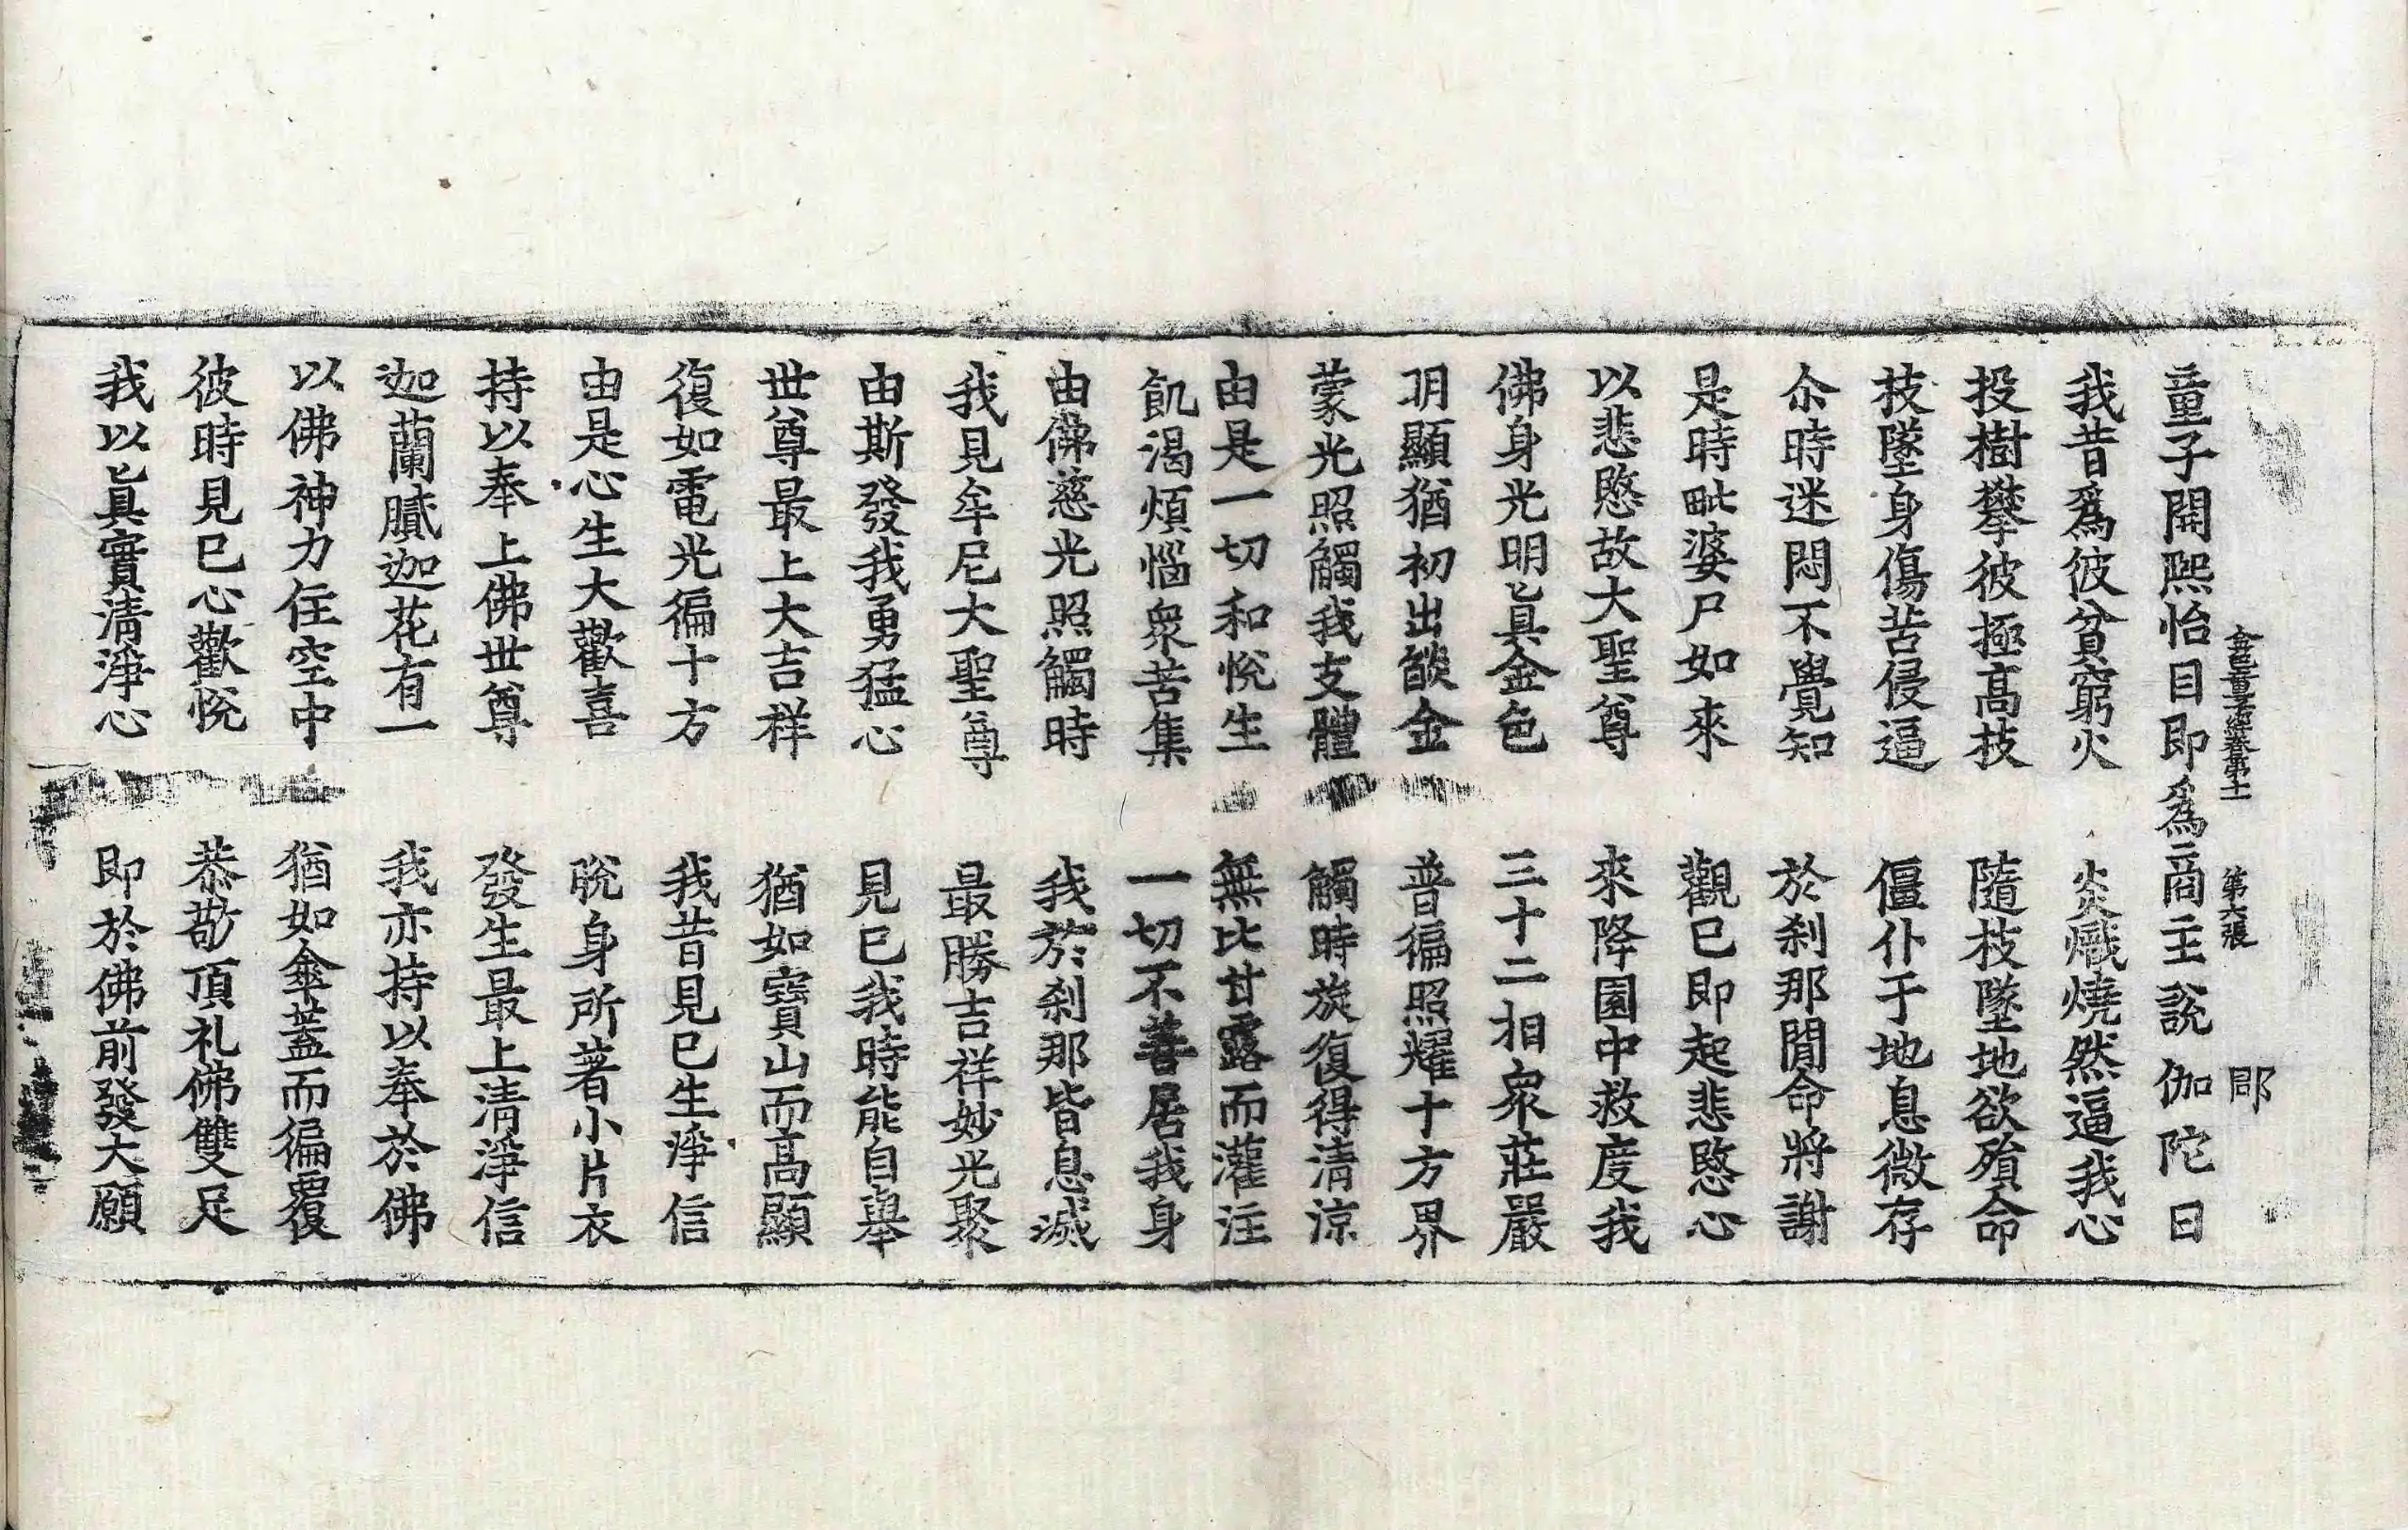 金色童子經卷第十一 第六張 郡
童子開熙怡目即爲商主說伽陀曰
我昔爲彼貧窮火 炎熾燒然逼我心
投樹攀彼極高技 隨枝墜地欲殞命
技墜身傷苦侵逼 僵仆于地息微存
尒時迷悶不覺知 於刹那閒命將謝
是時毗婆尸如來 觀已即起悲愍心
以悲愍故大聖尊 來降園中救度我
佛身光明眞金色 三十二相衆莊嚴
明顯猶初出燄金 普徧照耀十方界
蒙光照觸我支體 觸時旋復得清涼
由是一切和悅生 無比甘露而灌注
飢渴煩惱衆苦集 一切不善居我身
由佛慈光照觸時 我於刹那皆息滅
我見牟尼大聖尊 最勝吉祥妙光聚
由斯發我勇猛心 見已我時能自舉
世尊最上大吉祥 猶如寶山而高顯
復如電光徧十方 我昔見已生淨信
由是心生大歡喜 脫身所著小片衣
持以奉上佛世尊 發生最上清淨信
迦蘭膩迦花有一 我亦持以奉於佛
以佛神力住空中 猶如傘蓋而徧覆
彼時見已心歡悅 恭敬頂礼佛雙足
我以眞實清淨心 即於佛前發大願